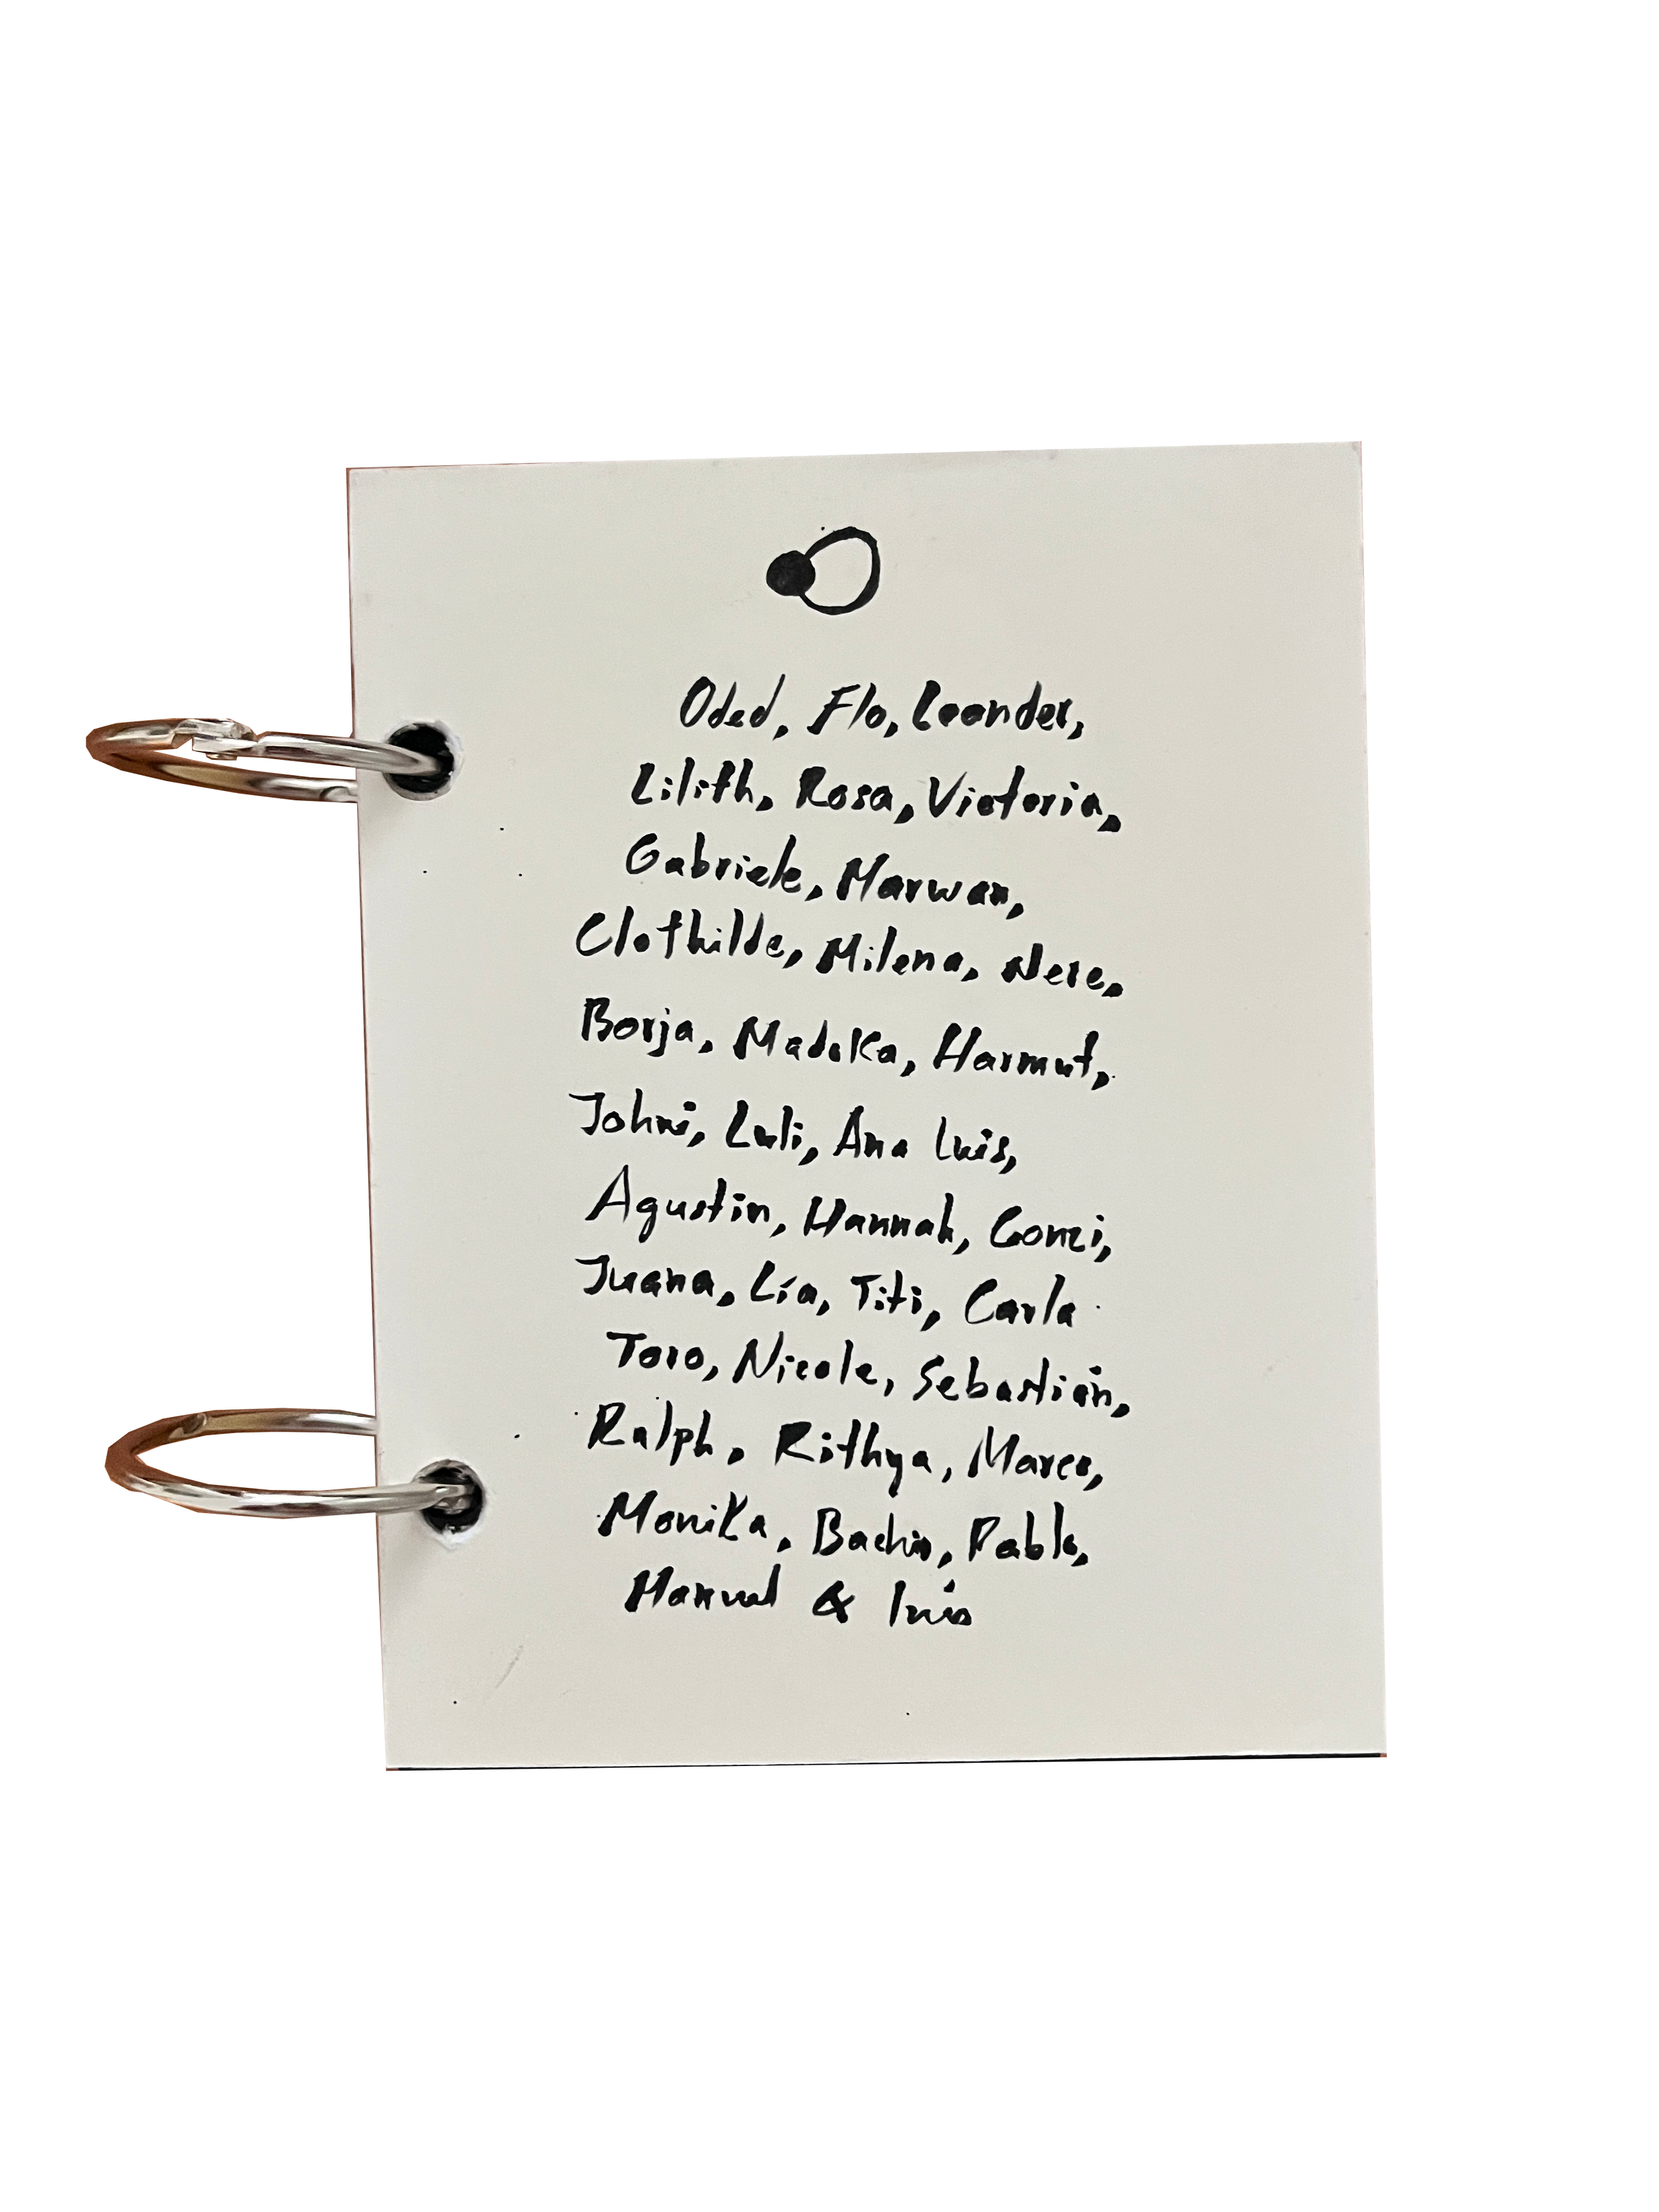 Oded, Flo, Leander,
Lilith, Rosa, Victoria,
Gabriele, Marwan,
Clothilde, Milena, Nere,
Borja, Madoka, Harmut,
Johni, Luli, Ana Luis,
Agustin, Hannah, Gonzi,
Juana, Lía, Titi, Carla
Toro, Nicole, Sebastián,
Ralph, Rithya, Marco,
Monika, Pablo,
Manuel & Inés